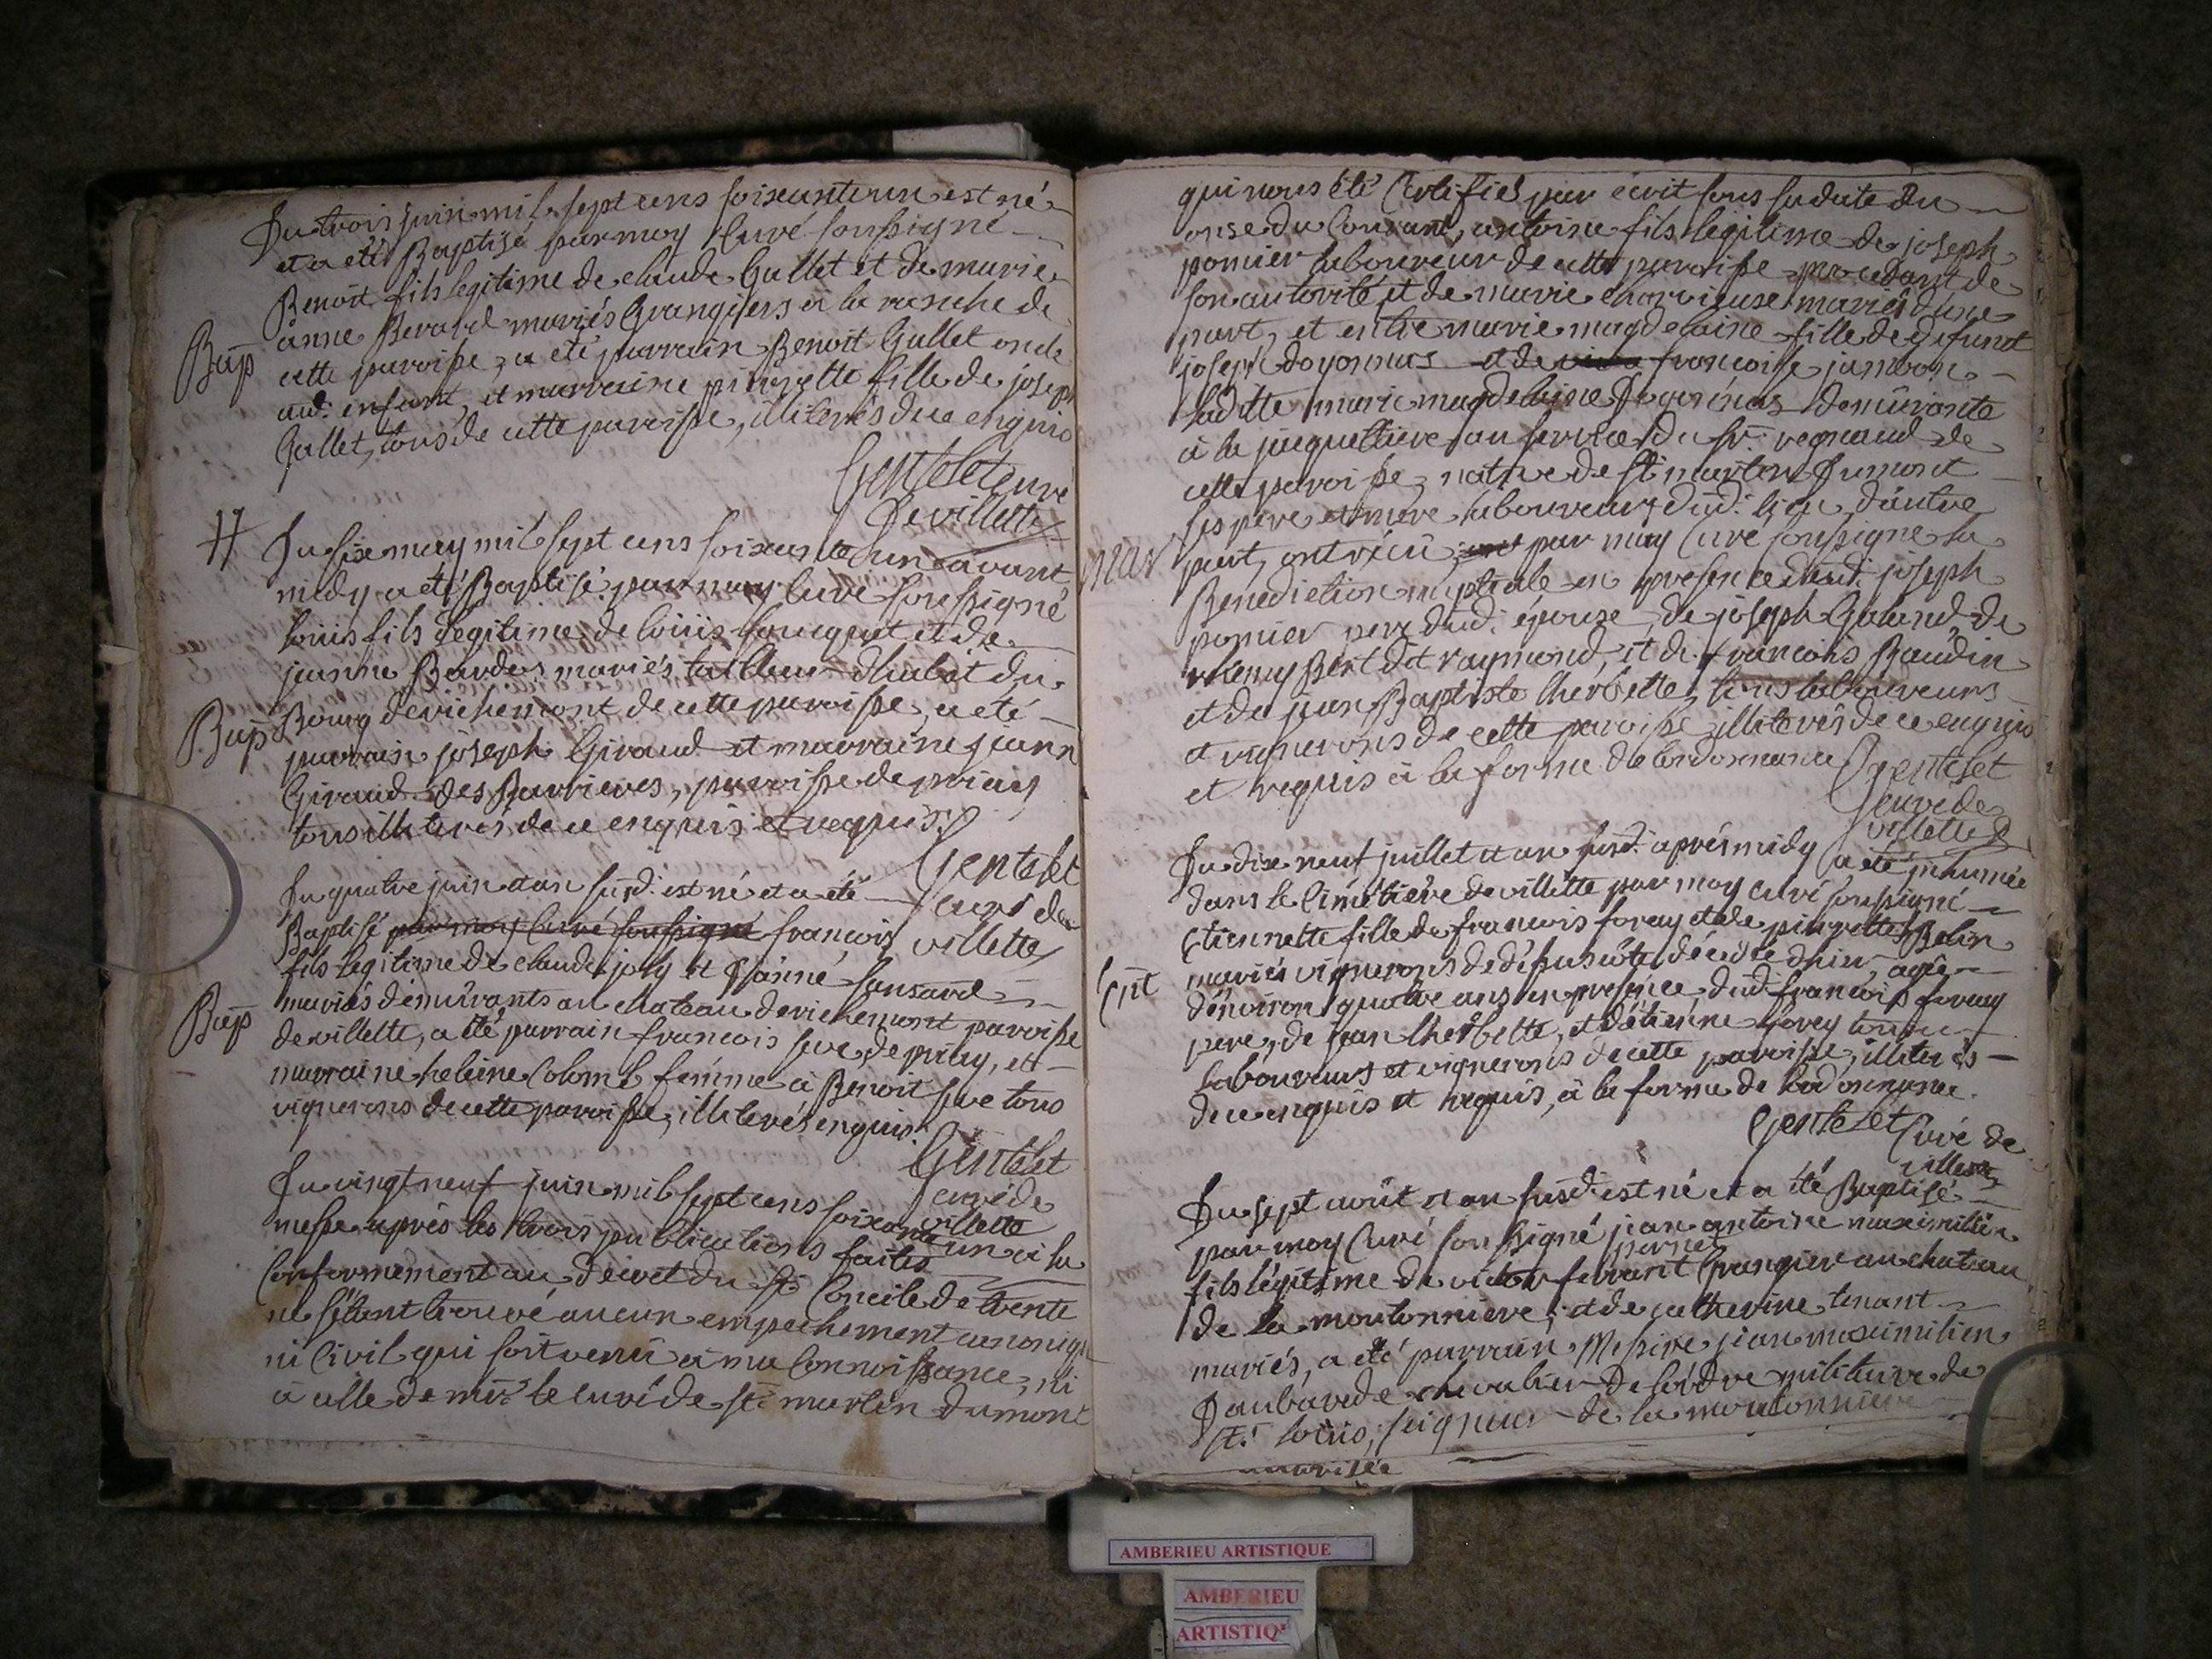 Du trois juin mil sept cens soixante un est né
et a eté Baptisé par moy Curé soussigné
Benoît fils legitime de claude Gallet et de marie
anne Berard mariés Grangiers à la ranche de
Bap
cette paroisse, a eté parrain Benoit Gallet oncle
aud. enfant, et marraine pierrette fille de joseph
Gallet, tous de cette paroisse, illiterés de ce enquis
Gentelet curé
De villette
H
Du six may mil sept cens soixante un avant
midy a eté Baptisé par moy Curé soussigné
loüis fils legitime de loüis fouquet et de
jeanne Bardes mariés tailleur d'habit du
Bap
Bourg de richemont de cette paroisse, a eté
parrain joseph Giraud et marraine jeann
Giraud des Barrieres, paroisse de priay
tous illiterés de ce enquis et requis.
Gentelet
curé de
villette
Du quatre juin et an susd. est né et a eté
Baptisé par moy Curé soussigné françois
fils legitime de claude joly et d'anne sansard
mariés demeurants au chateau de richemont paroisse
Bap
de villette, a eté parrain francois seve, de priay, et
marraine heleine Colomb femme à Benoit seve tous
vignerons de cette paroisse, illiterés enquis.
Gentelet
curé de
villette
Du vingt neuf juin mil sept cens soixante un à la
messe après les trois publications faites
Conformement au decret du St Concile de trente
ne s'étant trouvé aucun empechement canoniqu
ni Civil qui soit venû à ma Connoissance, ni
à celle de mr le curé de St martin Dumont
qui nous été Certifié par écrit sous sa date du
onse du Courant, antoine fils legitime de joseph
pomier laboureur de cette paroisse procedant de
son autorité et de marie charvieuse mariés d'une
part, et entre marie magdelaine fille de defunt
joseph doyonnas et de françoise jambon
laditte marie magdelaine Doyonnas demeurante
à la jacquetiere au service du sr. regnaud de
cette paroisse, native de St martin Dumont
ses pere et mere laboureurs dud. lieu, d'autre
mar
part, ont reçû par moy Curé soussigné la
Benediction nuptiale en presence dud. joseph
pomier pere dud. épouse, de joseph Galand, de
remy Bert dit raymond, et de francois Baudin
et de jean Baptiste lherbette, tous laboureurs
et vignerons de cette paroisse illiterés de ce enquis
et requis à la forme de l'ordonnance
Gentelet
curé de
villette
Du dix neuf juillet et an susd. aprés midy a eté inhumée
dans le Cimetière de villette par moy curé soussigné
Etiennette fille de francois foray et de pierrette Belin
mariés vignerons décédée d'hier, agée
Ent
d'environ quatre ans en presence dud. francois foray
pere, de jean lherbette, et d'etienne forey tous
laboureurs et vignerons de cette paroisse, illiterés
de ce enquis et requis, à la forme de l'ordonnance.
Gentelet Curé de
villette
Du sept août et an susd. est né et a été Baptisé
par moy Curé soussigné jean antoine maximilien
fils légitime de victor ferrant Grangier au chateau
de la moutonniere, et de catherine tenant
mariés, a eté parrain Messire jean maximilien
Daubarede chevalier de l'ordre militaire de
St. loüis, seigneur de la moutonniere
AMBERIEU ARTISTIQUE
AMBERIEU
ARTISTIQ